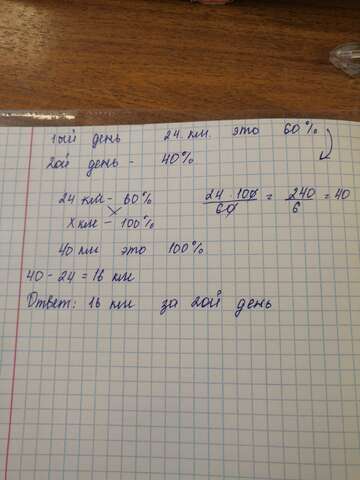 1ый день 24 км. это 60%
2ой день - 40%
24 км - 60%
x км - 100%
24 · 100 / 60 = 240 / 6 = 40
40 км это 100%
40 - 24 = 16 км
Ответ: 16 км за 2ой день